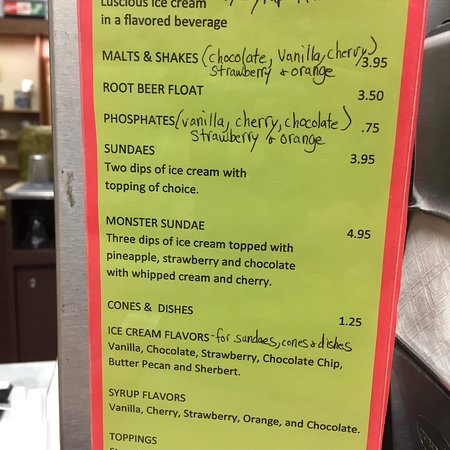 Luscious ice cream
in a flavored beverage
MALTS & SHAKES (chocolate, Vanilla, cherry,) 3.95
strawberry & orange
ROOT BEER FLOAT 3.50
PHOSPHATES (vanilla, cherry, chocolate) .75
strawberry & orange
SUNDAES 3.95
Two dips of ice cream with
topping of choice.
MONSTER SUNDAE 4.95
Three dips of ice cream topped with
pineapple, strawberry and chocolate
with whipped cream and cherry.
CONES & DISHES 1.25
ICE CREAM FLAVORS - for sundaes, cones & dishes
Vanilla, Chocolate, Strawberry, Chocolate Chip,
Butter Pecan and Sherbert.
SYRUP FLAVORS
Vanilla, Cherry, Strawberry, Orange, and Chocolate.
TOPPINGS